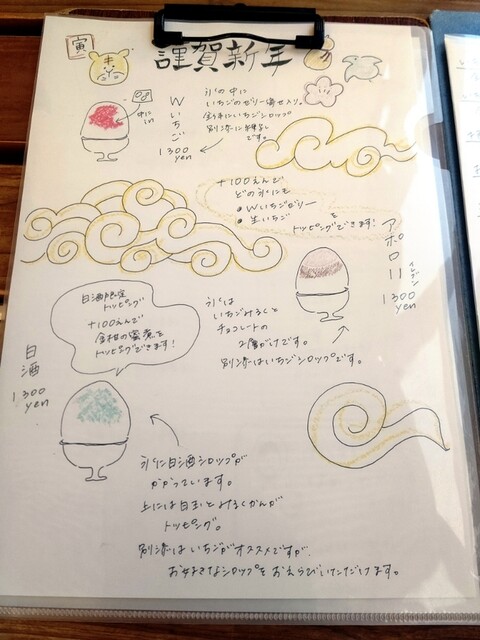 寅
謹賀新年
Wいちご
1300
yen
中に
氷の中に
いちごのゼリー寄せ入り。
いちごシロップ
別添に練乳
です。
+100えんで
どの氷にも
・Wいちごゼリー
・生いちご
を
トッピングできます!
アポロ11
イレブン
1300
yen
氷は
いちごみるくと
チョコレートの
2層がけです。
別添はいちごシロップです。
白酒限定
トッピング
+100えんで
金柑の蜜煮を
トッピングできます!
白酒
1300
yen
氷に白酒シロップが
かかっています。
上には白玉とみるくかんが
トッピング。
別添はいちごがオススメですが、
お好きなシロップをおえらびいただけます。